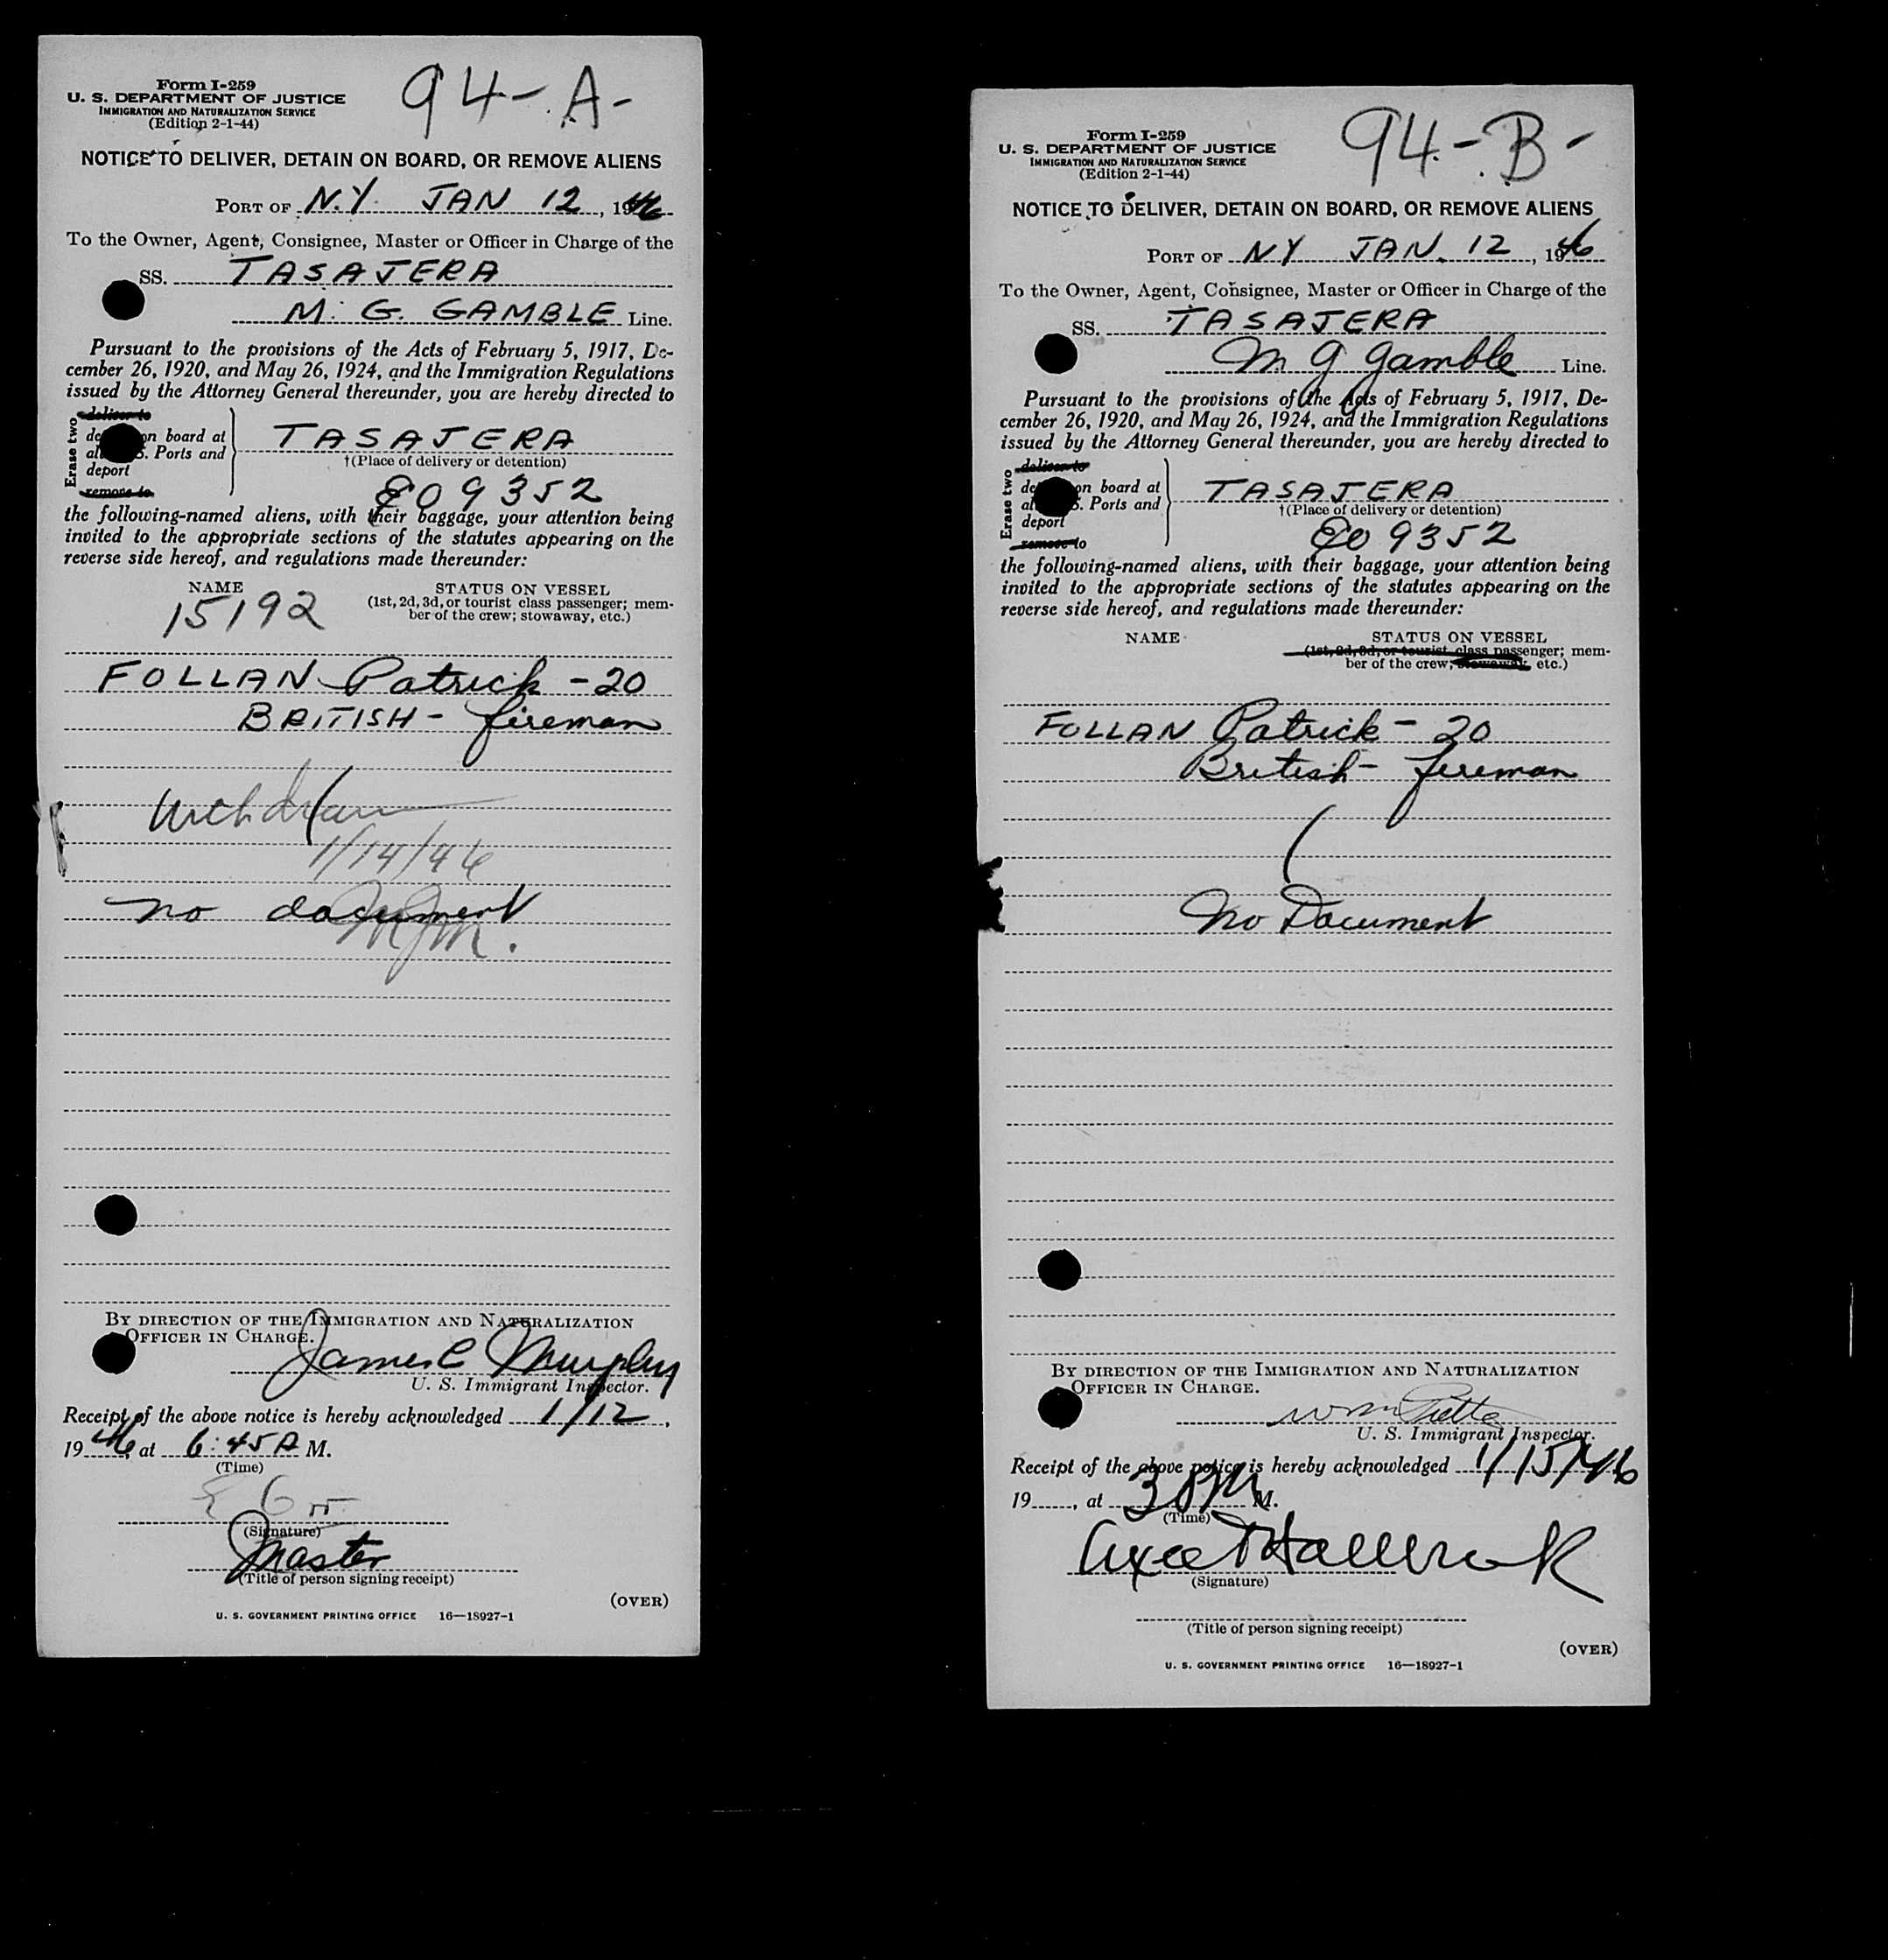 94-A-
Form I-259
U. S. DEPARTMENT OF JUSTICE
IMMIGRATION AND NATURALIZATION SERVICE
(Edition 2-1-44)
NOTICE TO DELIVER, DETAIN ON BOARD, OR REMOVE ALIENS
PORT OF N.Y. JAN 12, 1946
To the Owner, Agent, Consignee, Master or Officer in Charge of the
SS. TASAJERA
M. G. GAMBLE Line.
Pursuant to the provisions of the Acts of February 5, 1917, De-
cember 26, 1920, and May 26, 1924, and the Immigration Regulations
issued by the Attorney General thereunder, you are hereby directed to
Erase two
deliver to
on board at
Ports and
deport
remove to
TASAJERA
†(Place of delivery or detention)
909352
the following-named aliens, with their baggage, your attention being
invited to the appropriate sections of the statutes appearing on the
reverse side hereof, and regulations made thereunder:
NAME STATUS ON VESSEL
15192 (1st, 2d, 3d, or tourist class passenger; mem-
ber of the crew; stowaway, etc.)
FOLLAN Patrick - 20
BRITISH - fireman
Withdrawn
1/14/46
no document
MJM.
BY DIRECTION OF THE IMMIGRATION AND NATURALIZATION
OFFICER IN CHARGE.
James C Murphy
U. S. Immigrant Inspector.
Receipt of the above notice is hereby acknowledged 1/12,
1946, at 6:45 A M.
(Time)
(Signature)
Master
(Title of person signing receipt)
(OVER)
U. S. GOVERNMENT PRINTING OFFICE 16—18927-1
94-B-
Form I-259
U. S. DEPARTMENT OF JUSTICE
IMMIGRATION AND NATURALIZATION SERVICE
(Edition 2-1-44)
NOTICE TO DELIVER, DETAIN ON BOARD, OR REMOVE ALIENS
PORT OF NY JAN. 12, 1946
To the Owner, Agent, Consignee, Master or Officer in Charge of the
SS. TASAJERA
M G Gamble Line.
Pursuant to the provisions of the Acts of February 5, 1917, De-
cember 26, 1920, and May 26, 1924, and the Immigration Regulations
issued by the Attorney General thereunder, you are hereby directed to
Erase two
deliver to
on board at
Ports and
deport
remove to
TASAJERA
†(Place of delivery or detention)
909352
the following-named aliens, with their baggage, your attention being
invited to the appropriate sections of the statutes appearing on the
reverse side hereof, and regulations made thereunder:
NAME STATUS ON VESSEL
(1st, 2d, 3d, or tourist class passenger; mem-
ber of the crew; stowaway, etc.)
FOLLAN Patrick - 20
British - fireman
No Document
BY DIRECTION OF THE IMMIGRATION AND NATURALIZATION
OFFICER IN CHARGE.
U. S. Immigrant Inspector.
Receipt of the above notice is hereby acknowledged 1/15/46
19, at 3 PM M.
(Time)
(Signature)
(Title of person signing receipt)
(OVER)
U. S. GOVERNMENT PRINTING OFFICE 16—18927-1